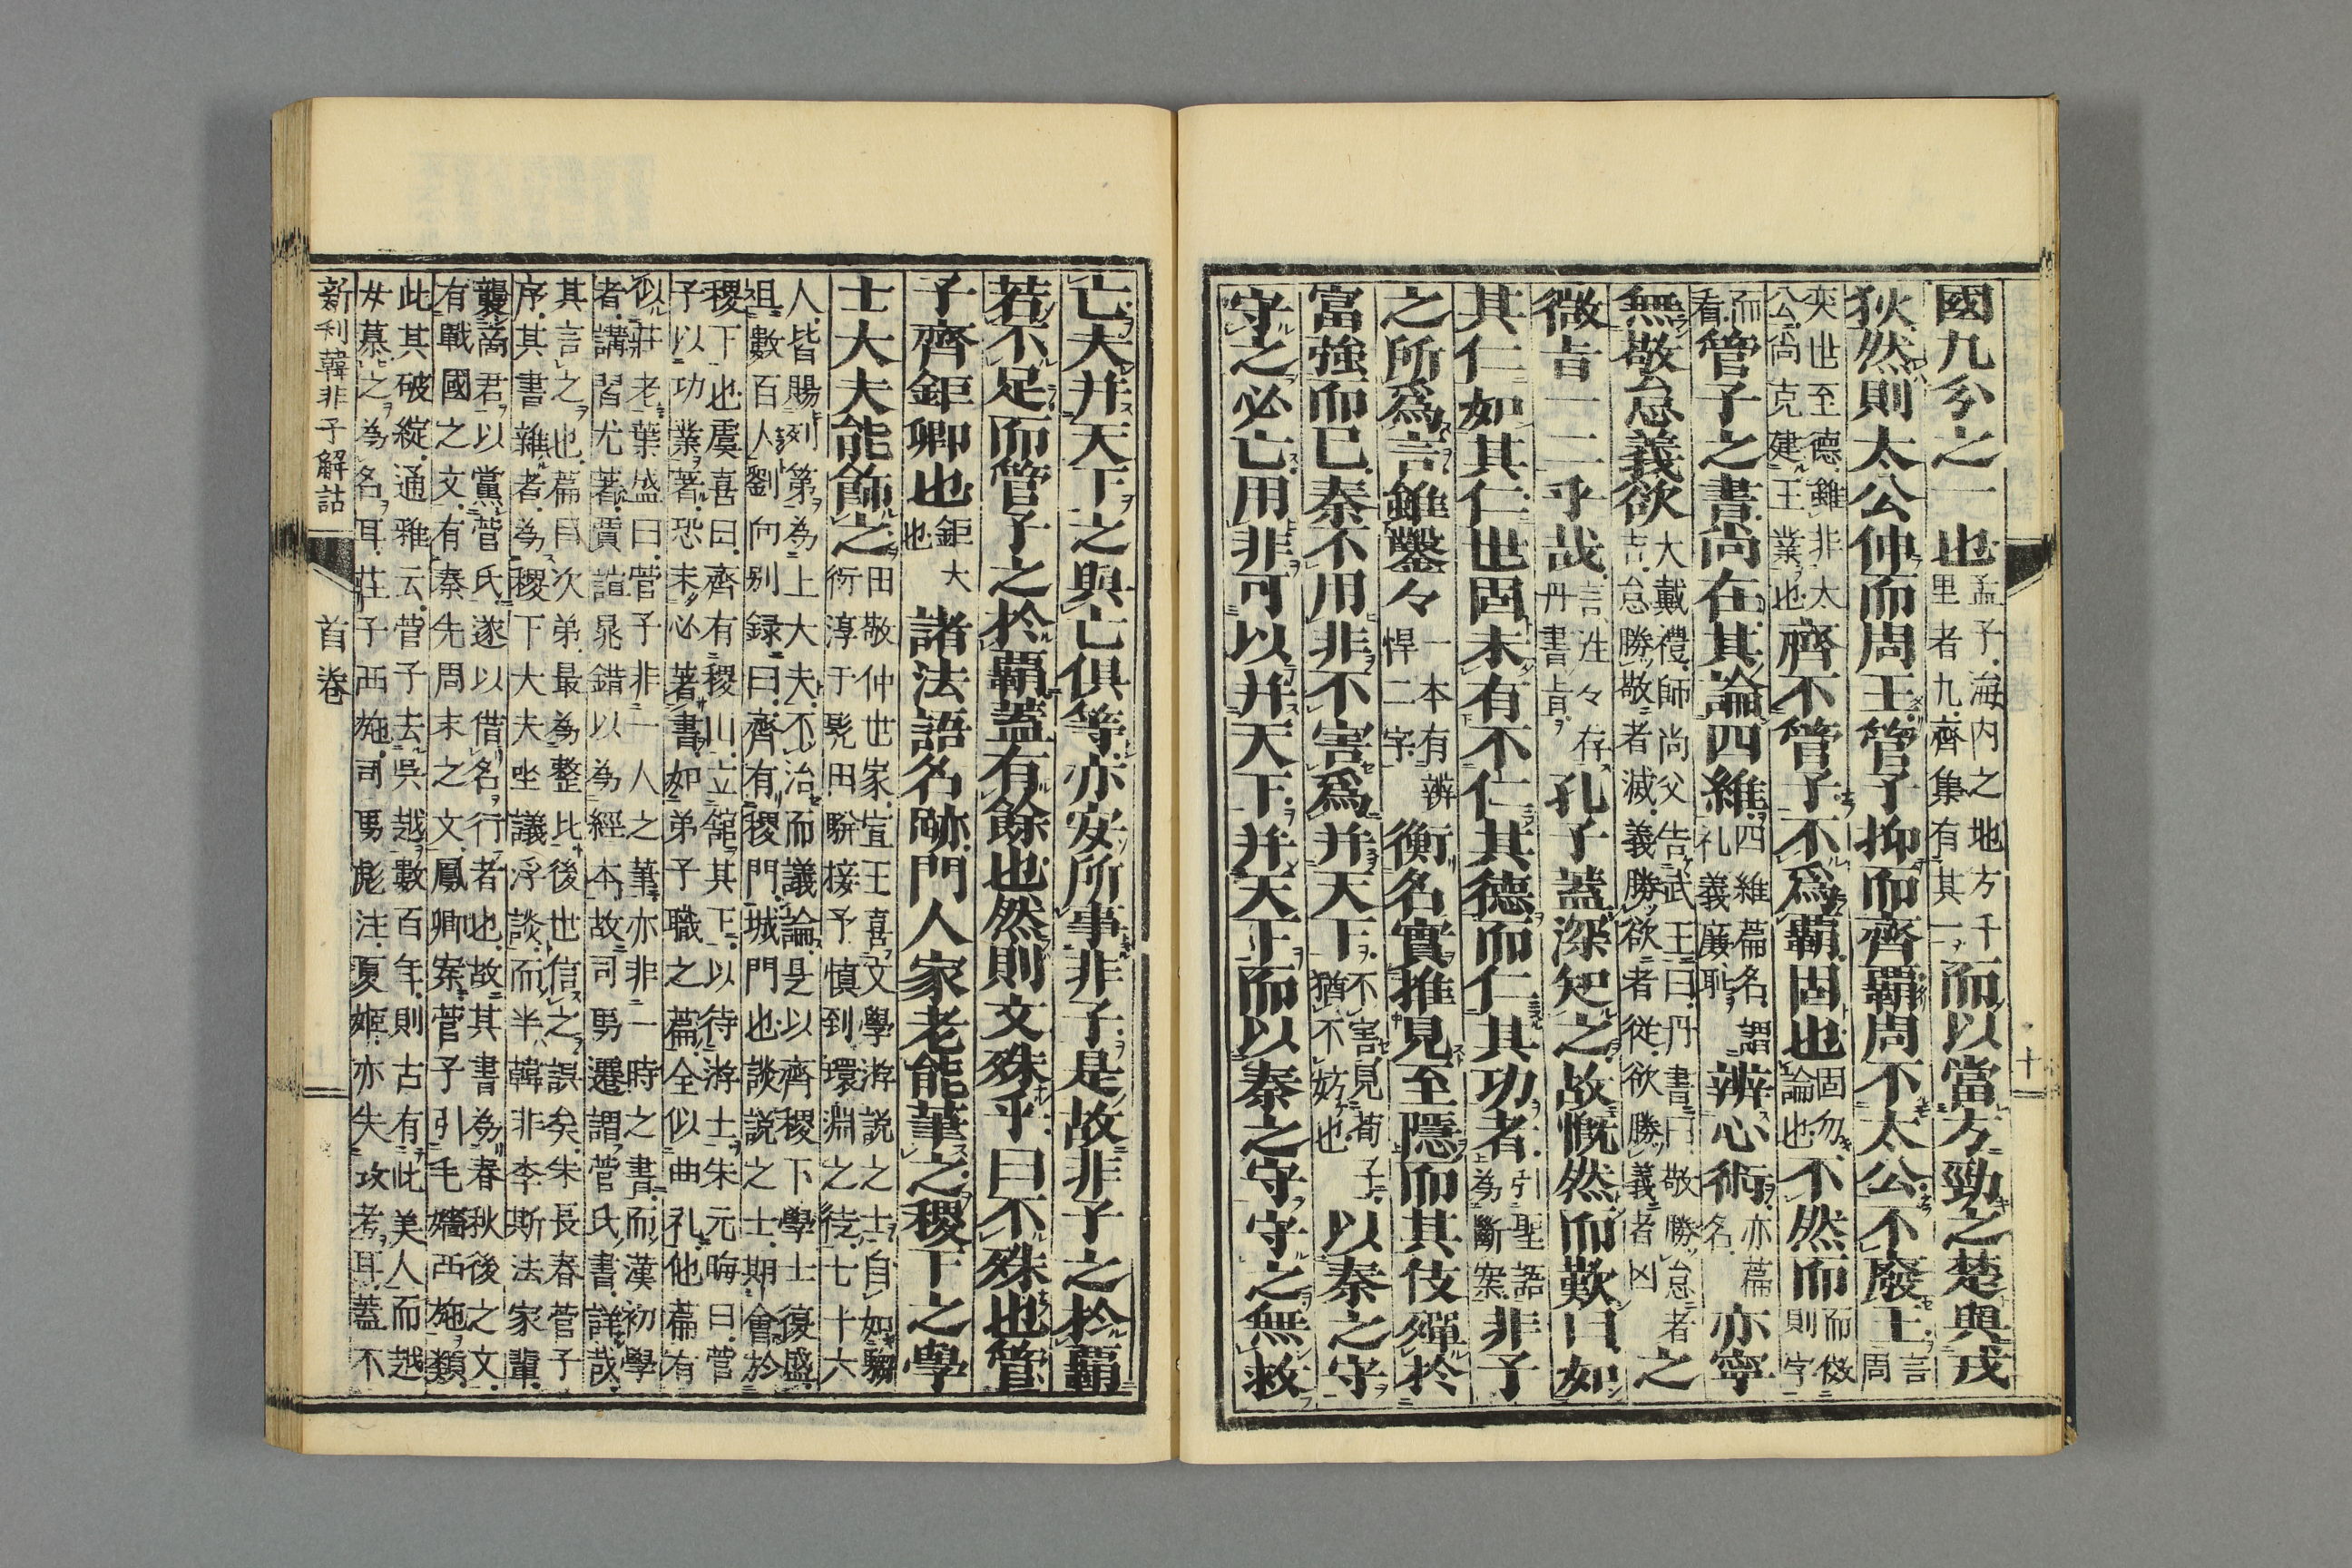 國九分之一也孟子海内之地方千里者九齊集有其一而以當方勁之楚與戎
狄然則太公仲而周王管子抑而齊覇周不太公不廢王言周
突世至德雖非太公尚克建王業也齊不管子不爲覇固也固勿論也不然而而倓則字
而看管子之書尚在其論四維四維篇名謂礼義廉恥辨心術亦篇名亦寧
無敬怠義欲大戴禮師尚父告武王曰丹書曰敬勝怠者吉怠勝敬者滅義勝欲者從欲勝義者凶之
微旨一二乎哉言注々存丹書旨孔子蓋深知之故慨然而歎曰如
其仁如其仁世固未有不仁其德而仁其功者引聖語爲斷案非子
之所爲言雖鑿々一本有辨悍二字衡名實推見至隱而其伎殫於
富強而已秦不用非不害爲并天下不害見荀子猶不妨也以秦之守
守之必亡用非可以并天下并天下而以秦之守守之無救
亡夫并天下之與亡俱等亦安所事非子是故非子之於覇
若不足而管子之於覇蓋有餘也然則文殊乎曰不殊也管
子齊鉅卿也鉅大也諸法語名跡門人家老能筆之稷下之學
士大夫能飾之田敬仲世家宣王喜文學游說之士自如騶衍淳于髡田駢接予愼到環淵之徒七十六
人皆賜列第為上大夫不治而議論是以齊稷下學士復盛
祖數百人劉向别録曰齊有稷門城門也談説之士期會於
稷下也虞喜曰齊有稷山立舘其下以待游士朱元晦曰管
子以功業著恐未必著書如弟子職之篇全似曲礼他篇有
似莊老葉盛曰管子非一人之筆亦非一時之書而漢初學
者講習尤著賈誼晁錯以為經本故司馬遷謂管氏書詳哉
其言之也篇目次弟最為整比後世信之誤矣朱長春管子
序其書雜者為稷下大夫坐議浮談而半韓非李斯法家輩
襲商君以黨管氏遂以借名行者也故其書為春秋後之文
有戰國之文有秦先周末之文鳳卿案管子引毛嬙西施類
此其破綻通雅云管子去吳越數百年則古有此美人而越
女慕之為名耳荘子西施司馬彪注夏姬亦失攷考耳蓋不
新刻韓非子解詁
首卷
十